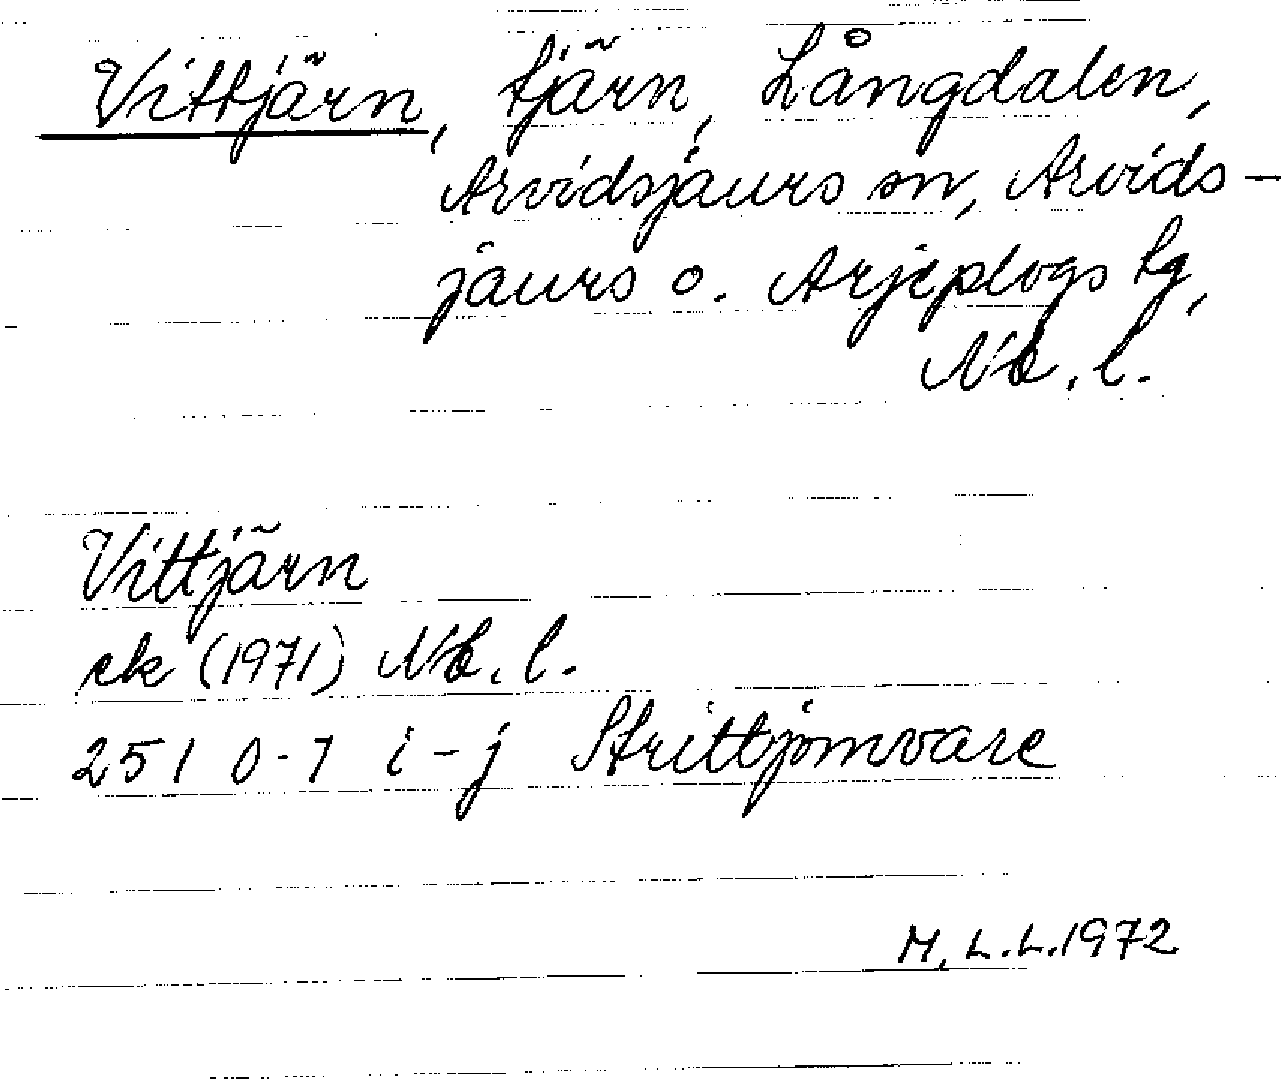 Vittjärn, tjärn, Långdalen,
Arvidsjaurs sn, Arvids-
jaurs o. Arjeplogs tg,
Nb. l.
Vittjärn
ek (1971) Nb. l.
251 0-1 i-j Strittjomvare
M. L. L. 1972